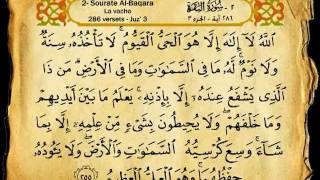 2- Sourate Al-Baqara
La vache
286 versets - Juz' 3
٢ - سورة البقرة
٢٨٦ آية - الجزء ٣
ٱللَّهُ لَآ إِلَٰهَ إِلَّا هُوَ ٱلْحَىُّ ٱلْقَيُّومُ ۚ لَا تَأْخُذُهُۥ سِنَةٌ
وَلَا نَوْمٌ ۚ لَّهُۥ مَا فِى ٱلسَّمَٰوَٰتِ وَمَا فِى ٱلْأَرْضِ ۗ مَن ذَا
ٱلَّذِى يَشْفَعُ عِندَهُۥٓ إِلَّا بِإِذْنِهِۦ ۚ يَعْلَمُ مَا بَيْنَ أَيْدِيهِمْ
وَمَا خَلْفَهُمْ ۖ وَلَا يُحِيطُونَ بِشَىْءٍ مِّنْ عِلْمِهِۦٓ إِلَّا بِمَا
شَآءَ ۚ وَسِعَ كُرْسِيُّهُ ٱلسَّمَٰوَٰتِ وَٱلْأَرْضَ ۖ وَلَا يَـُٔودُهُۥ
حِفْظُهُمَا ۚ وَهُوَ ٱلْعَلِىُّ ٱلْعَظِيمُ ٢٥٥